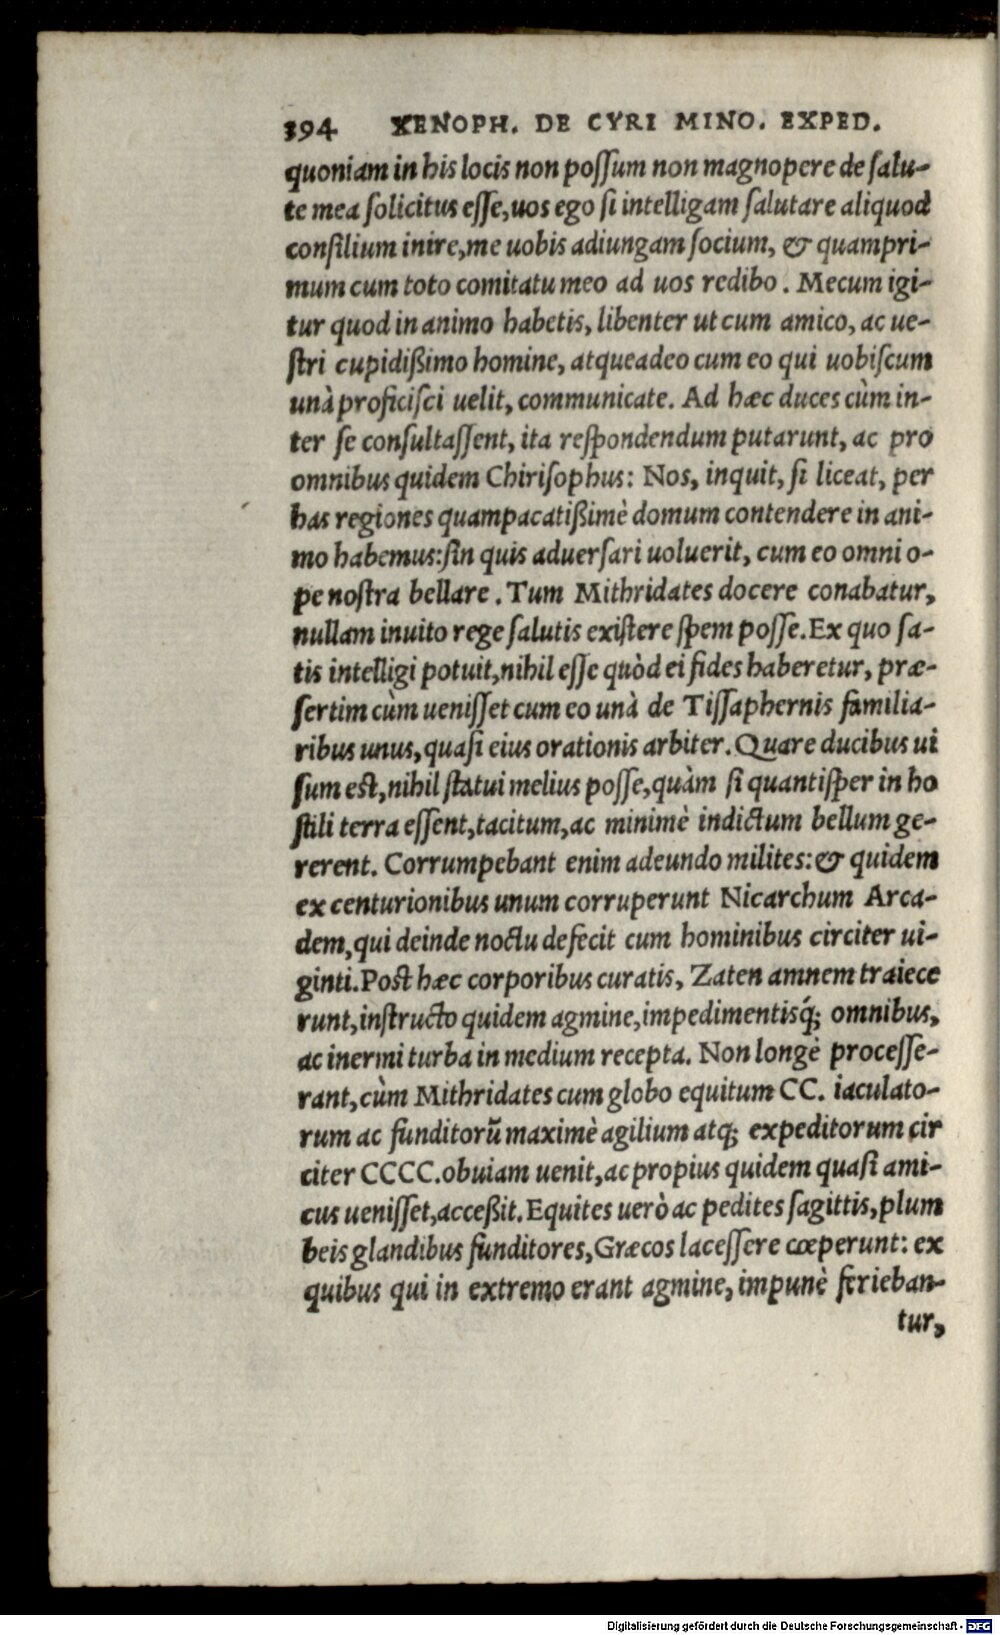 394 XENOPH. DE CYRI MINO. EXPED.
quoniam in his locis non possum non magnopere de salu-
te mea solicitus esse, uos ego si intelligam salutare aliquod
consilium inire, me uobis adiungam socium, & quampri-
mum cum toto comitatu meo ad uos redibo. Mecum igi-
tur quod in animo habetis, libenter ut cum amico, ac ue-
stri cupidißimo homine, atqueadeo cum eo qui uobiscum
unà proficisci uelit, communicate. Ad hæc duces cùm in-
ter se consultassent, ita respondendum putarunt, ac pro
omnibus quidem Chirisophus: Nos, inquit, si liceat, per
has regiones quampacatißimè domum contendere in ani-
mo habemus: sin quis aduersari uoluerit, cum eo omni o-
pe nostra bellare. Tum Mithridates docere conabatur,
nullam inuito rege salutis existere spem posse. Ex quo sa-
tis intelligi potuit, nihil esse quòd ei fides haberetur, præ-
sertim cùm uenisset cum eo unà de Tissaphernis familia-
ribus unus, quasi eius orationis arbiter. Quare ducibus ui
sum est, nihil statui melius posse, quàm si quantisper in ho
stili terra essent, tacitum, ac minimè indictum bellum ge-
rerent. Corrumpebant enim adeundo milites: & quidem
ex centurionibus unum corruperunt Nicarchum Arca-
dem, qui deinde noctu defecit cum hominibus circiter ui-
ginti. Post hæc corporibus curatis, Zaten amnem traiece
runt, instructo quidem agmine, impedimentisq́; omnibus,
ac inermi turba in medium recepta. Non longè processe-
rant, cùm Mithridates cum globo equitum CC. iaculato-
rum ac funditorũ maximè agilium atq; expeditorum cir
citer CCCC. obuiam uenit, ac propius quidem quasi ami-
cus uenisset, acceßit. Equites uerò ac pedites sagittis, plum
beis glandibus funditores, Græcos lacessere cœperunt: ex
quibus qui in extremo erant agmine, impunè ferieban-
tur,
Digitalisierung gefördert durch die Deutsche Forschungsgemeinschaft - DFG